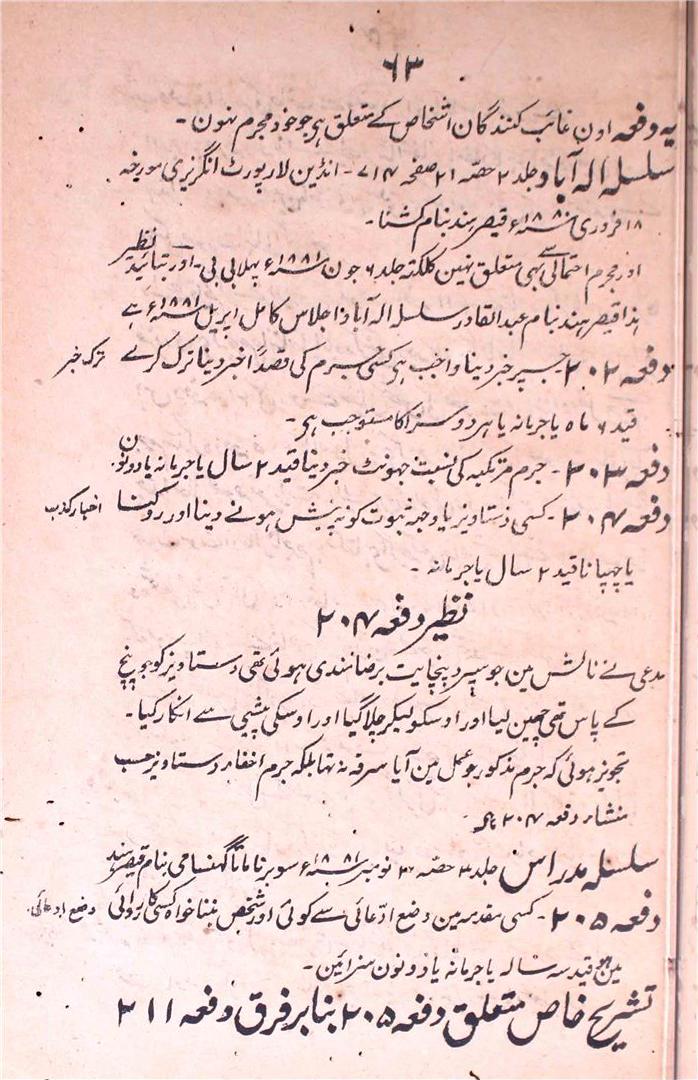 ۶۳
یہ دفعہ اون غائب کنندگان اشخاص کے متعلق ہی جو خود مجرم نہون۔
سلسلہ الہ آباد جلد ۲ حصہ ۲۱ صفحہ ۷۱۴۔ انڈین لا رپورٹ انگریزی مورخہ
۱۸ فروری ۱۸۸۰ء قیصر ہند بنام کشنا۔
اور مجرم احتمالی سے بہی متعلق نہین کلکتہ جلد ۶ جون ۱۸۸۱ء پہلا بی بی۔ اور بتائید نظیر
ہذا قیصر ہند بنام عبدالقادر سلسلہ الہ آباد اجلاس کامل اپریل ۱۸۸۱ء ہے
دفعہ ۲۰۲۔ جسپر خبر دینا واجب ہی کسی جرم کی قصداً خبر دینا ترک کرے ترک خبر
قید ۶ ماہ یا جرمانہ یا ہر دو سزا کا مستوجب ہی۔
دفعہ ۲۰۳۔ جرم مرتکبہ کی نسبت جہونٹ خبر دینا قید ۲ سال یا جرمانہ یا دونون
دفعہ ۲۰۴۔ کسی دستاویز یا وجہ ثبوت کو نہ پیش ہونے دینا اور روکنا اخبار کذب
یا چہپانا قید ۲ سال یا جرمانہ۔
نظیر دفعہ ۲۰۴
مدعی نے نالش مین جو سپرد پنچایت برضامندی ہوئی تہی دستاویز کو جو پنچ
کے پاس تہی چہین لیا اور اوسکو لیکر چلا گیا اور اوسکی پیشی سے انکار کیا۔
تجویز ہوئی کہ جرم مذکور جو عمل مین آیا سرقہ نہ تہا بلکہ جرم اخفاء دستاویز حسب
منشاء دفعہ ۲۰۴ ہی
سلسلہ مدراس جلد ۳ حصہ ۳ نومبر ۱۸۸۱ء سوبرناماتا گہنسامی بنام قیصر ہند
دفعہ ۲۰۵۔ کسی مقدمہ مین وضع ادعائی سے کوئی اور شخص بننا خواہ کسی کارروائی وضع ادعائی۔
مین ہو قید سہ سالہ یا جرمانہ یا دونون سزائین۔
تشریح خاص متعلق دفعہ ۲۰۵ بنابر فرق دفعہ ۲۱۱